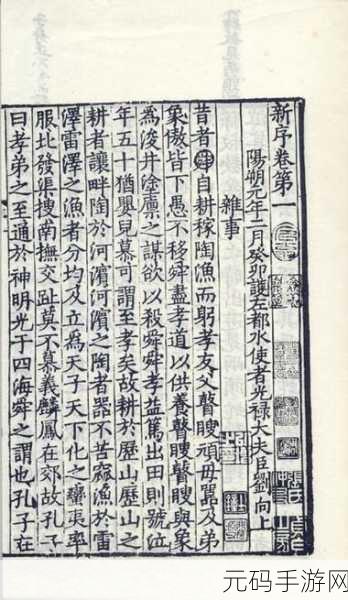 新序卷第一
陽朔元年二月癸卯護左都水使者光禄大夫臣劉向上
雜事
昔者舜自耕稼陶漁而躬孝友父瞽瞍頑母嚚及弟
象傲皆下愚不移舜盡孝道以供養瞽瞍瞽瞍與象
為浚井塗廩之謀欲以殺舜舜孝益篤出田則號泣
年五十猶嬰兒慕可謂至孝矣故耕於歷山歷山之
耕者讓畔陶於河濱河濱之陶者器不苦窳漁於雷
澤雷澤之漁者分均及立為天子天下化之蠻夷率
服北發渠搜南撫交阯莫不慕義麟鳳在郊故孔子
曰孝弟之至通於神明光于四海舜之謂也孔子在
元码手游网